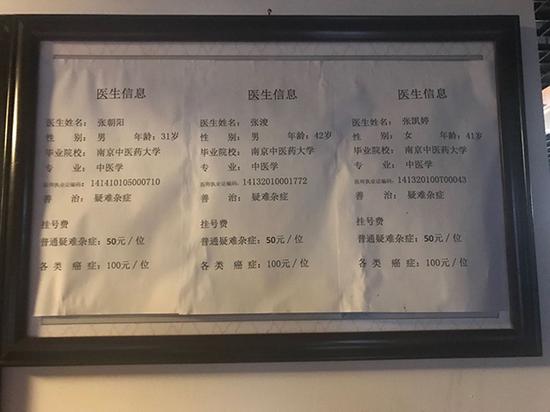 医生信息
医生姓名：张朝阳
性 别：男 年龄：31岁
毕业院校：南京中医药大学
专 业：中医学
医师执业证编码：141410105000710
善 治：疑难杂症
挂号费
普通疑难杂症：50元／位
各 类 癌 症：100元／位
医生信息
医生姓名：张浚
性 别：男 年龄：42岁
毕业院校：南京中医药大学
专 业：中医学
医师执业证编码：14132010001772
善 治：疑难杂症
挂号费
普通疑难杂症：50元／位
各 类 癌 症：100元／位
医生信息
医生姓名：张淇婷
性 别：女 年龄：41岁
毕业院校：南京中医药大学
专 业：中医学
医师执业证编码：141320100700043
善 治：疑难杂症
挂号费
普通疑难杂症：50元／位
各 类 癌 症：100元／位